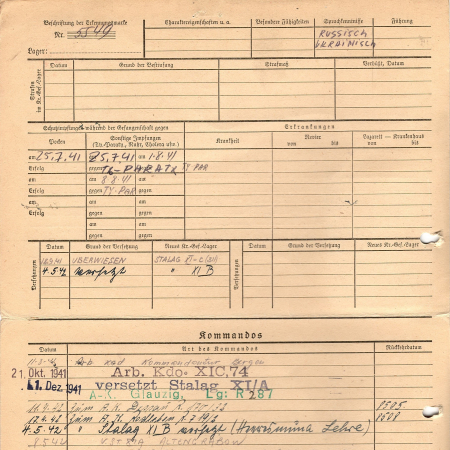 Beschriftung der Erkennungsmarke
Nr. 5549
Lager:
Charaktereigenschaften u. a.
Besondere Fähigkeiten
Sprachkenntnisse
RUSSISCH
UKRAINISCH
Führung
Strafen im Kr.-Gef.-Lager
Datum Grund der Bestrafung Strafmaß Verbüßt, Datum
Schutzimpfungen während der Gefangenschaft gegen
Pocken
Sonstige Impfungen
(Ty.-Paraty., Ruhr, Cholera usw.)
Erkrankungen
Krankheit
Revier
von bis
Lazarett - Krankenhaus
von bis
am 25.7.41 am 25.7.41 am 1.8.41
Erfolg gegen TY-PARATY gegen TY-PAR
am am 8.8.41 am
Erfolg gegen TY-PAR gegen
am am am
Erfolg gegen gegen
am am am
Erfolg gegen gegen
Versetzungen
Datum Grund der Versetzung Neues Kr.-Gef.-Lager
ÜBERWIESEN STALAG XI-C (311)
4.5.42 versetzt " XI B
Versetzungen
Datum Grund der Versetzung Neues Kr.-Gef.-Lager
Kommandos
Datum Art des Kommandos Rückkehrdatum
Arb. Kdo Kommandantur Bergen
21. Okt. 1941 Arb. Kdo. XIC, 74
1. Dez. 1941 versetzt Stalag XI/A
A.-K. Glauzig, Lg: R 287
11.4.42 zum A.K. 8505
17.4.42 zum A.K. 8508
4.5.42 " Stalag XI B versetzt
8542 ALTENGRABOW